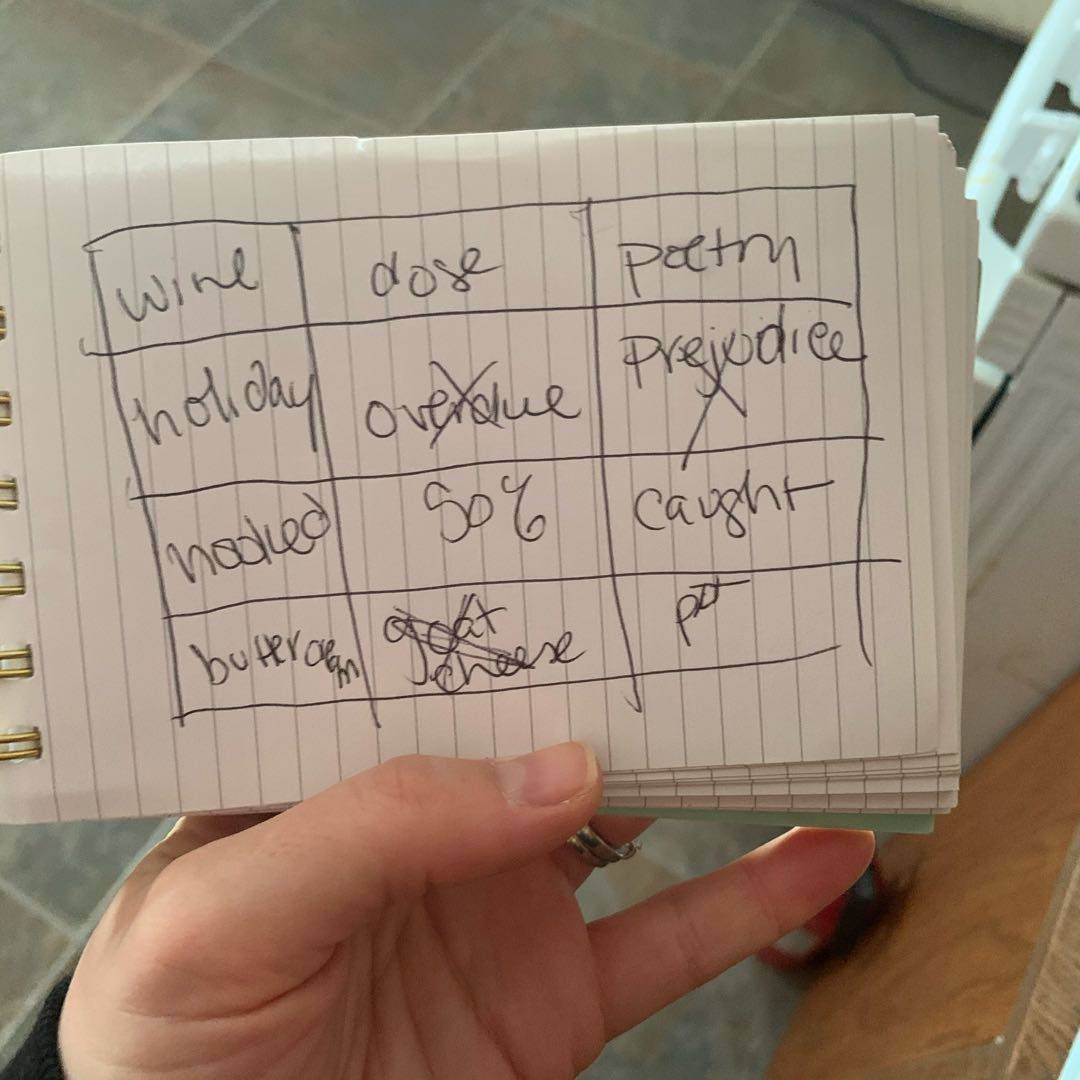 wine dose poetry
holiday overdue prejudice
hooked 50% caught
buttercream goat
cheese